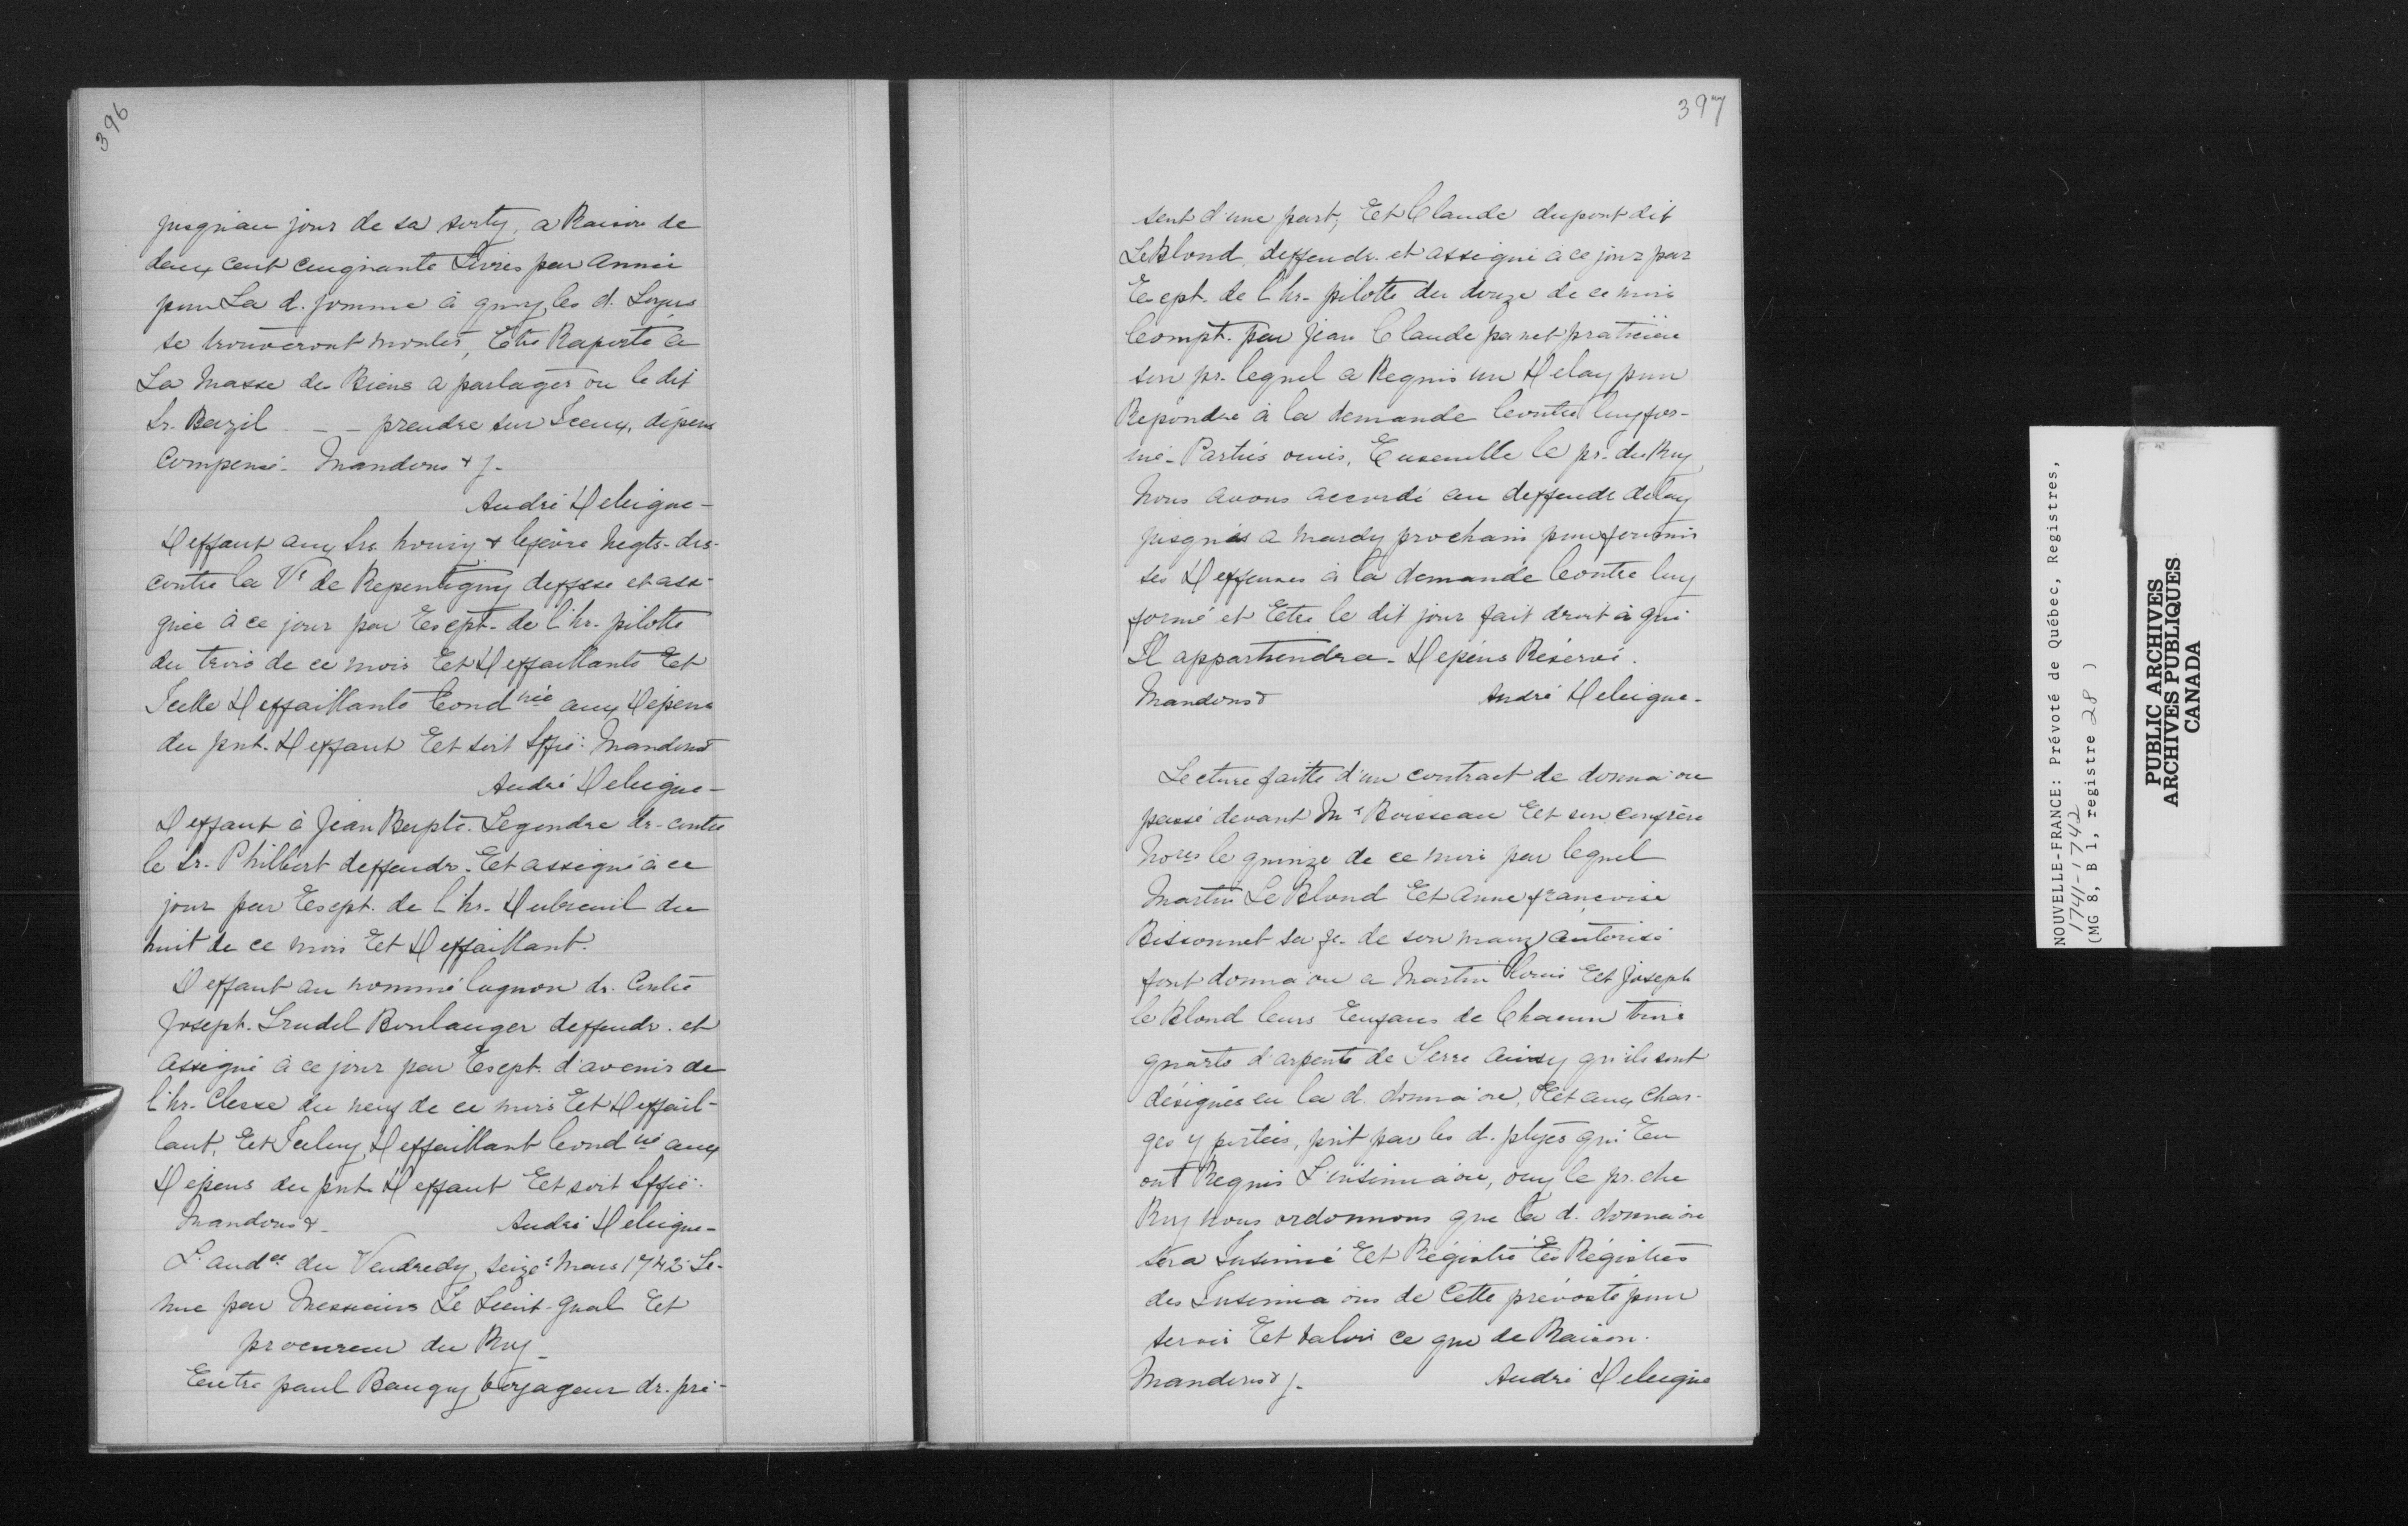 396
jusqu'au jour de sa sorty, a Raison de
deux cent cinquante Livres par année
pour La d. somme à quoy les d. Loyers
se trouveront monter, Estre Raporté a
La Masse des Biens a partager ou le dit
Sr. Bazil - - prendre sur Iceux, dépens
Compensé - Mandons & j-
André Deleigne-
Deffaut aux Srs. houry & lefevre Negts- drs-
contre la Ve de Repentigny deffsse et assi-
gnée à ce jour par Exept. de l'hr. pilotte
du trois de ce mois Et Deffaillante Et
Icelle Deffaillante Condnée aux Dépens
du pnt. Deffaut Et soit Sffié: Mandons
André Deleigne-
Deffaut à Jean Bapte. Legendre dr- contre
le Sr. Philbert deffendr. Et assigné à ce
jour par Exept. de l'hr. Dubreuil du
huit de ce mois Et Deffaillant.
Deffaut au nommé lagnon dr. Contre
Joseph. Trudel Boulanger deffendr. et
assigné à ce jour par Exept. d'avenir de
l'hr. Clesse du neuf de ce mois Et Deffail-
lant, Et Iceluy Deffaillant Condné aux
Dépens du pnt Deffaut Et soit Sffié.
Mandons &- André Deleigne-
L'audce du Vendredy seize Mars 1742 Te-
nue par Messieurs Le Lieut-gnal Et
procureur du Roy-
Entre paul Baugy voyageur dr. pré-
397
sent d'une part, Et Claude dupont dit
LeBlond deffendr. et assigné à ce jour par
Exept. de l'hr. pilotte du douze de ce mois
Compt. par Jean Claude panet praticien
son pr. lequel a Requis un Delay pour
Repondre à la demande Contre luy for-
mé- Parties ouies, Ensemble le pr. du Roy
Nous avons accordé au deffendr delay
jusqu'à a mardy prochain pour fournir
ses Deffenses à la demande Contre luy
formé et Etre le dit jour fait droit à qui
Il appartiendra- Dépens Réservé.
Mandons & André Deleigne-
Lecture faitte d'un contract de donna on
passé devant Me Boisseau Et son confrère
Nores le quinze de ce mois par lequel
Martin Le Blond Et Anne françoise
Bissonnet sa fe. de son mary autorisé
font donna on a Martin Louis Et Joseph
le Blond leurs Enfans de Chacun trois
quarts d'arpents de Terre ainsy qu'ils sont
désignés en la d. donna on, Et aux char-
ges y portées, prit par les d. ptyes qui En
ont Requis L'insinua on, ouy le pr. du
Roy Nous ordonnons que la d. donna on
sera Insinué Et Régistré Es Régistres
des Insinua ons de Cette prévosté pour
servir Et valoir ce que de Raison.
Mandons & j. André Deleigne
NOUVELLE-FRANCE: Prévoté de Québec, Registres,
1741-1742
(MG 8, B 1, registre 28 )
PUBLIC ARCHIVES
ARCHIVES PUBLIQUES
CANADA